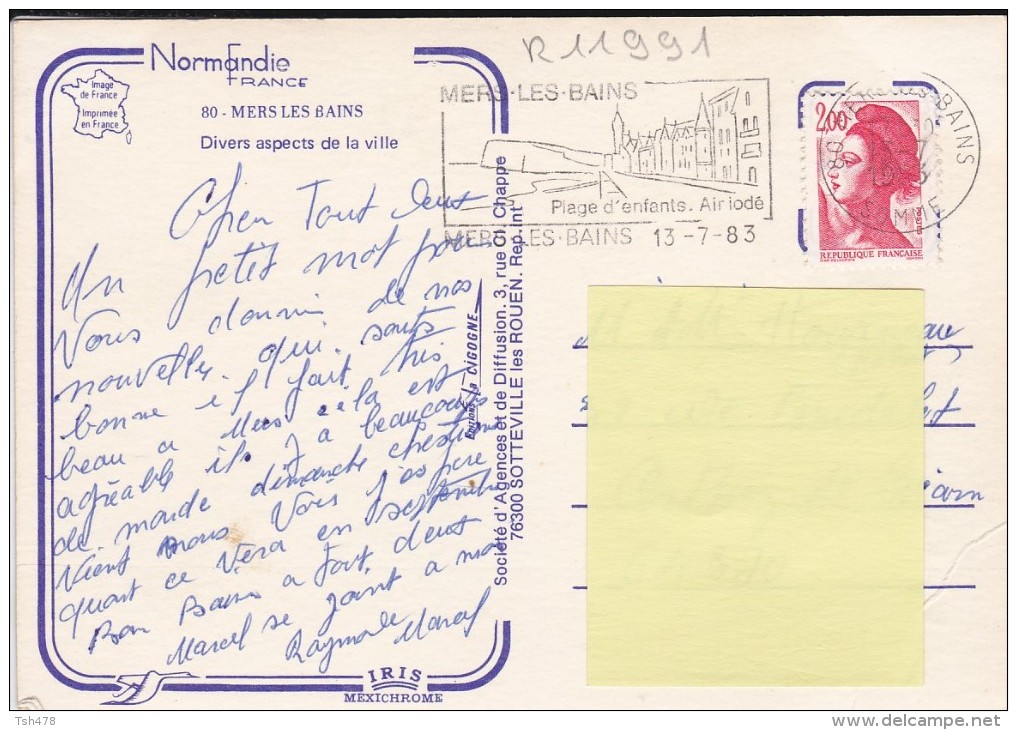 R11991
Normandie
FRANCE
Image
de France
Imprimée
en France
80 - MERS LES BAINS
Divers aspects de la ville
MERS-LES-BAINS
Plage d'enfants. Air iodé
MERS-LES-BAINS 13-7-83
2,00
RÉPUBLIQUE FRANÇAISE
POSTES
80 MERS-LES-BAINS
SOMME
Cher Tout deux
Un petit mot pour
Vous donnir de nos
nouvelles qui sonts
bonne il fait très
beau a Mers cela est
agréable il y a beaucoups
de monde dimanche
Vient nous Voir j'espere
quart ce Vera en septembre
Bon Baise a Tout deux
Marcel se joint a moi
Raymonde Marcel
EDITIONS La CIGOGNE
Société d'Agences et de Diffusion. 3, rue Cl. Chappe
76300 SOTTEVILLE les ROUEN. Rep. int
IRIS
MEXICHROME
Tsh478
delcampe.net